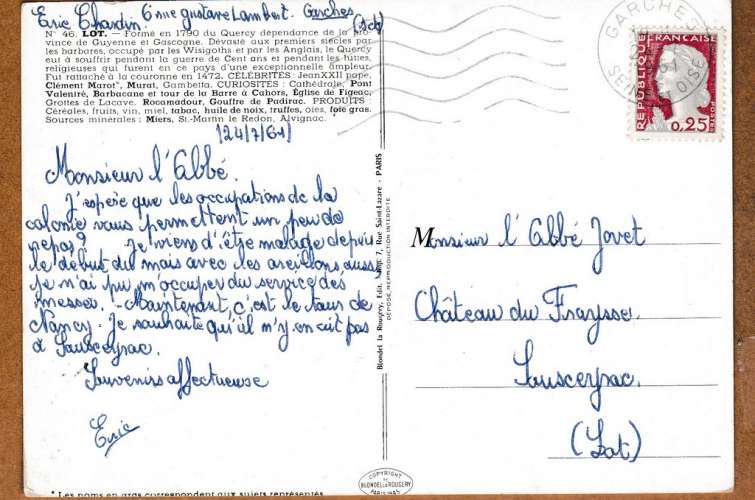 Eric Chardin. 6 rue Gustave Lambert. Garches
N° 46. LOT. — Formé en 1790 du Quercy dépendance de la pro-
vince de Guyenne et Gascogne. Dévasté aux premiers siècles par
les barbares, occupé par les Wisigoths et par les Anglais, le Quercy
eut à souffrir pendant la guerre de Cent ans et pendant les luttes
religieuses qui furent en ce pays d'une exceptionnelle ampleur.
Fut rattaché à la couronne en 1472. CÉLÉBRITÉS : Jean XXII pape,
Clément Marot*, Murat, Gambetta. CURIOSITÉS : Cathédrale, Pont
Valentré, Barbacane et tour de la Barre à Cahors, Église de Figeac,
Grottes de Lacave, Rocamadour, Gouffre de Padirac. PRODUITS :
Céréales, fruits, vin, miel, tabac, huile de noix, truffes, oies, foie gras.
Sources minérales : Miers, St.-Martin le Redon, Alvignac.
(24/7/61)
Monsieur l'Abbé.
J'espère que les occupations de la
colonie vous permettent un peu de
repos? Je viens d'être malade depuis
le début du mois avec les oreillons aussi
je n'ai pu m'occuper du service des
messes. - Maintenant, c'est le tour de
Nancy. Je souhaite qu'il n'y en ait pas
à Sousceyrac.
Souvenirs affectueuse
Eric
* Les noms en gras correspondent aux sujets représentés
Blondel la Rougery, Edit. Imp. 7, Rue Saint-Lazare - PARIS
DÉPOSÉ REPRODUCTION INTERDITE
COPYRIGHT
BLONDEL LA ROUGERY
PARIS 1945
GARCHES
SEINE ET OISE
REPUBLIQUE FRANÇAISE
0,25
Monsieur l'Abbé Jovet
Château du Fraysse.
Sousceyrac.
(Lot)